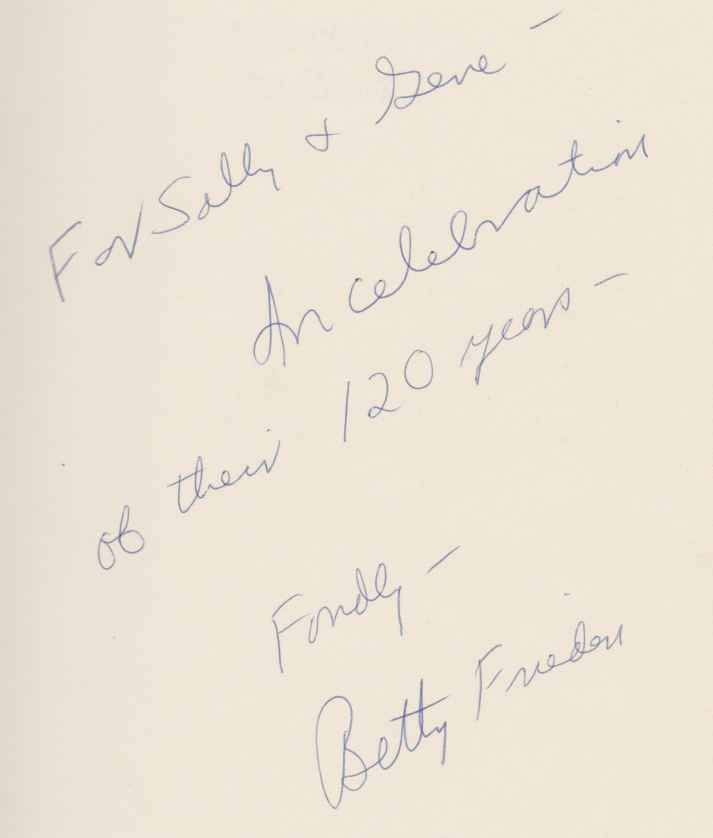 For Sally & Gene –
In celebration
of their 120 years –
Fondly –
Betty Friedan